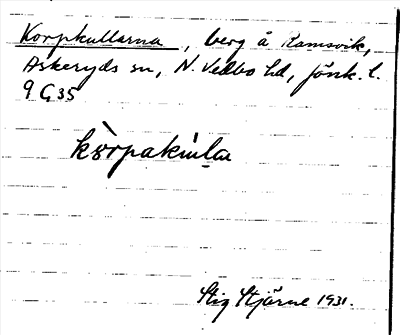 Korpkullarna, berg å Ramsvik,
Askeryds sn, N. Vedbo hd, Jönk. l.
9 G 35
Stig Stjärne 1931.